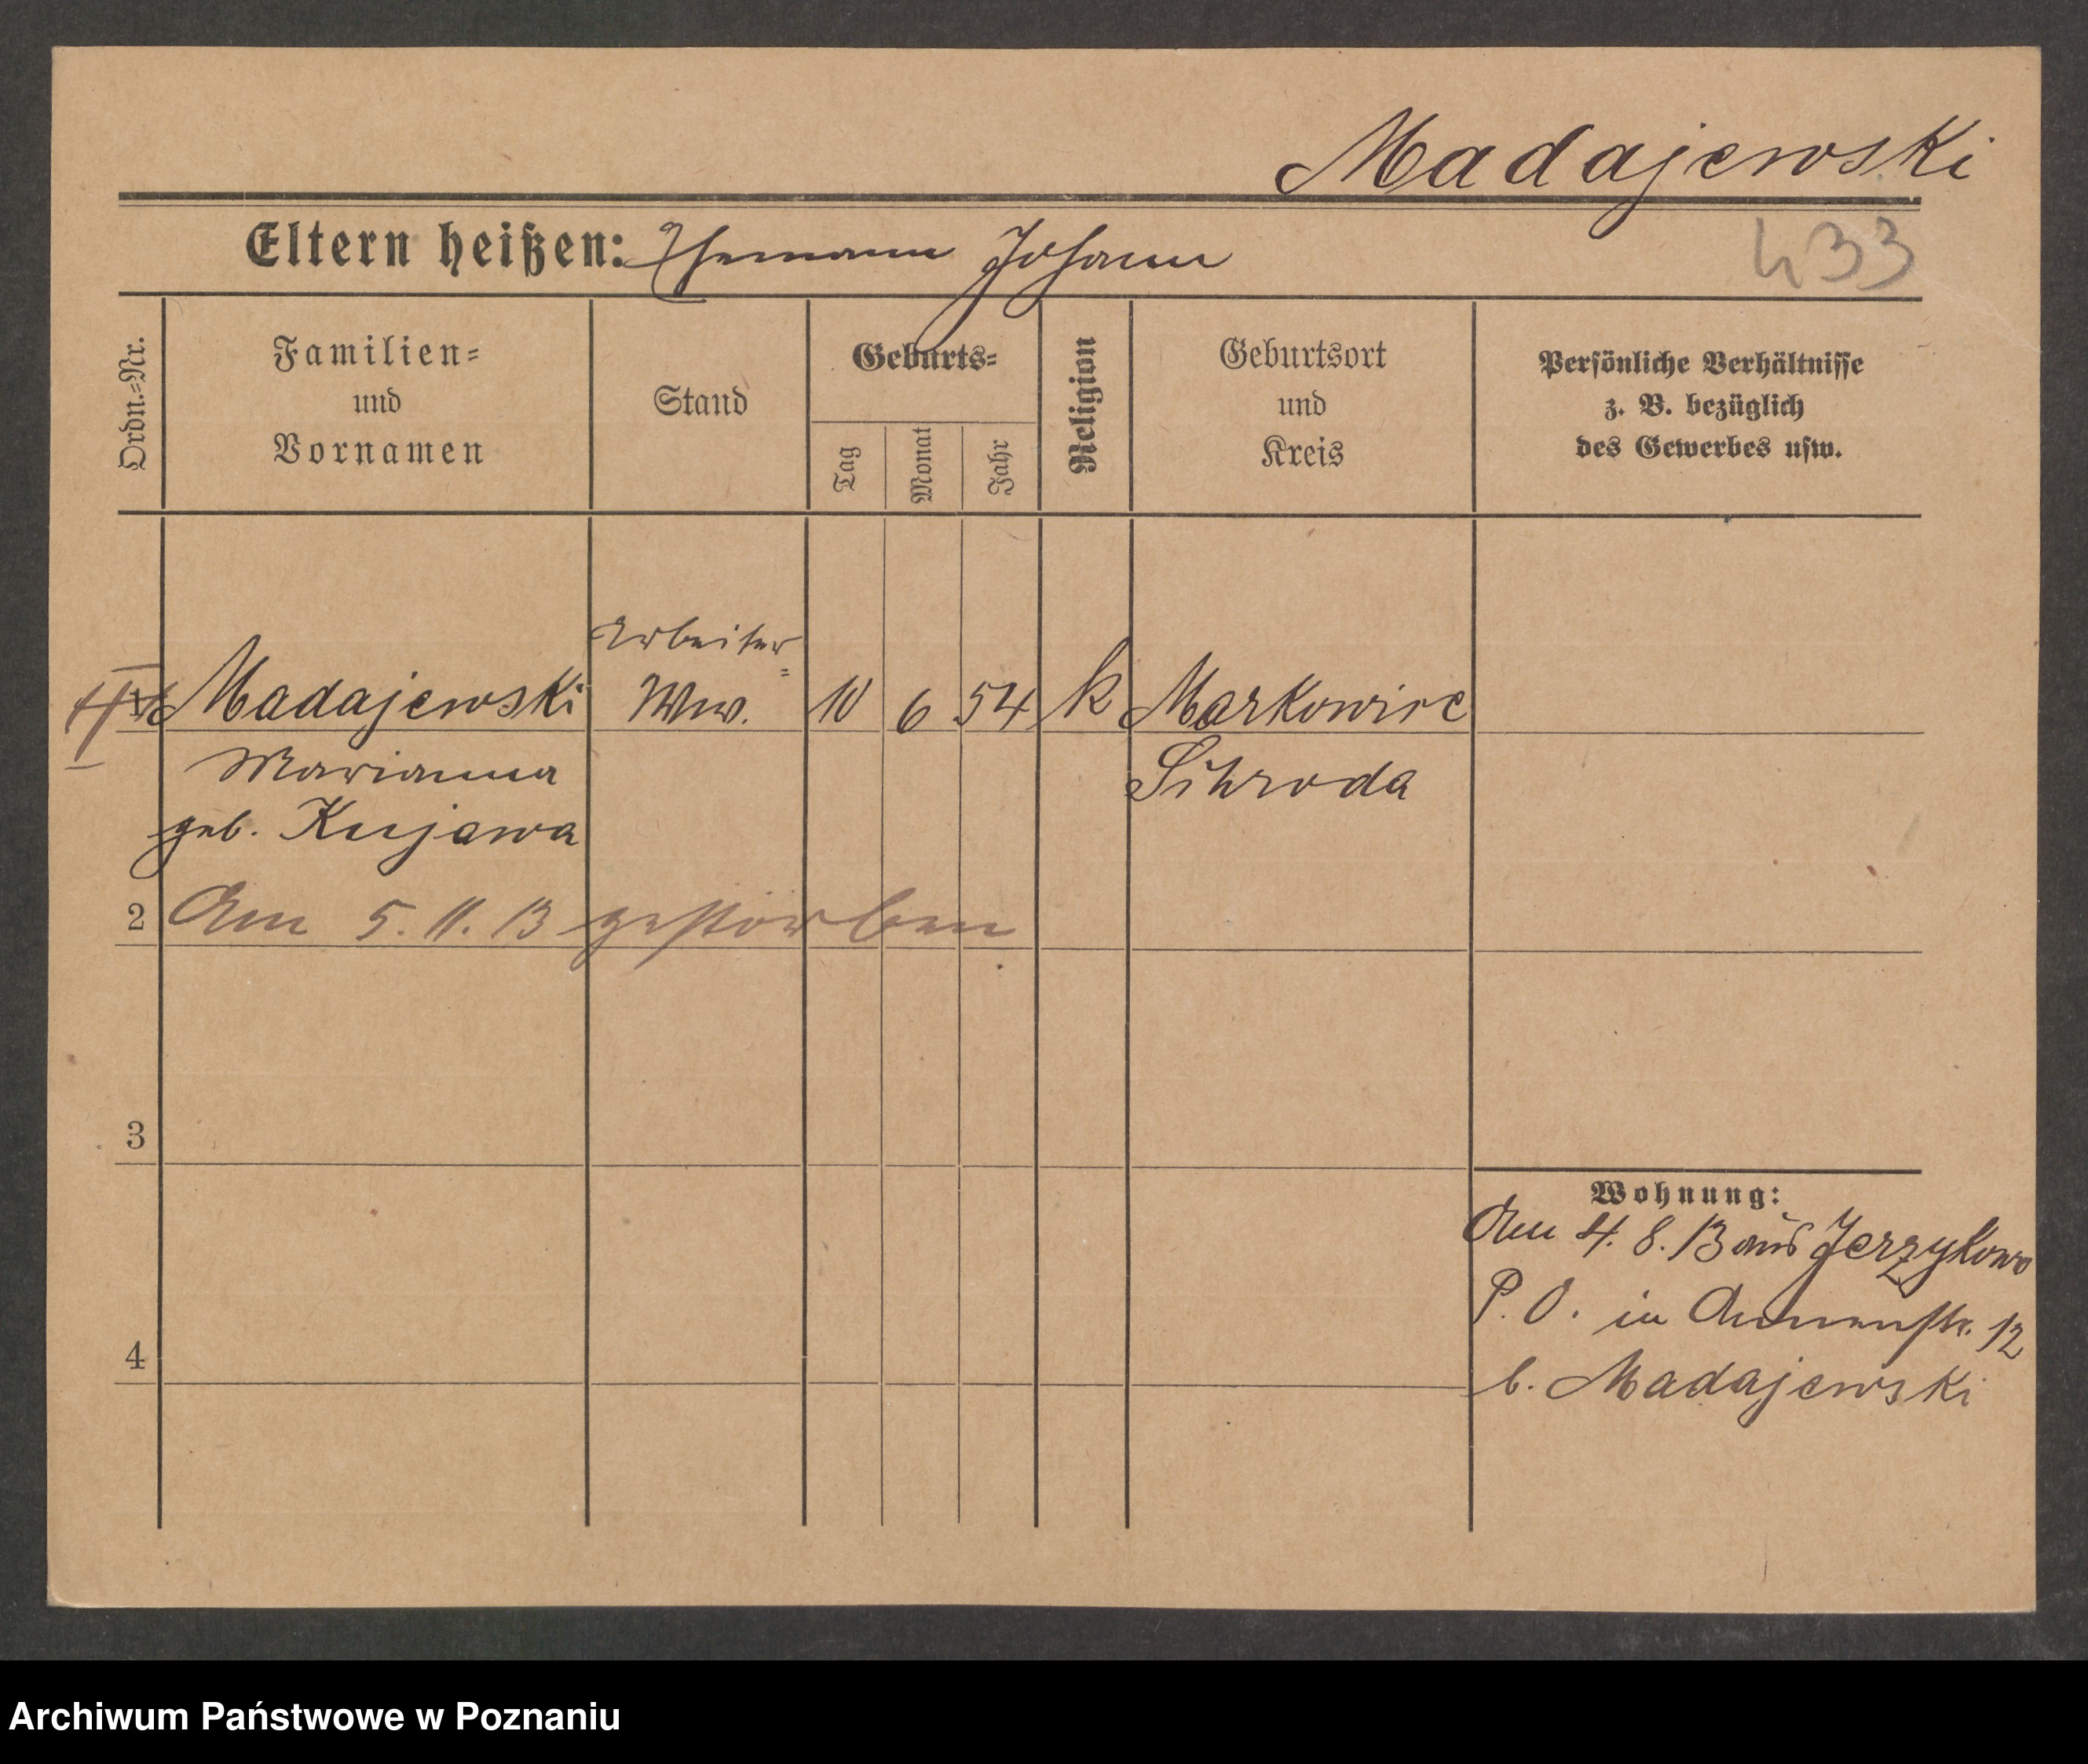 Madajewski
Eltern heißen: Ehemann Johann
433
Ordn.-Nr.
Familien-
und
Vornamen
Stand
Geburts-
Tag
Monat
Jahr
Religion
Geburtsort
und
Kreis
Persönliche Verhältnisse
z. B. bezüglich
des Gewerbes usw.
Arbeiter-
1 Madajewski Ww. 10 6 54 k Markowice
Marianna Schroda
geb. Kujawa
2 Am 5. 11. 13 gestorben
3
Wohnung:
Am 4. 8. 13 aus Jerzykowo
P. O. in Annenstr. 12
4
b. Madajewski
Archiwum Państwowe w Poznaniu